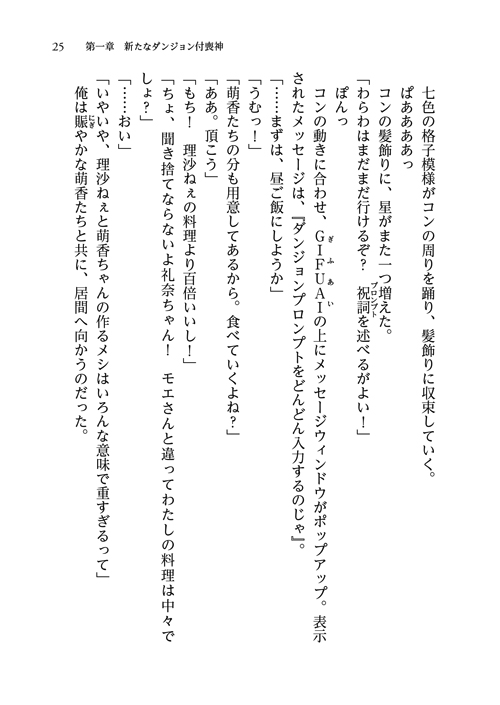 25　第一章　新たなダンジョン付喪神
七色の格子模様がコンの周りを踊り、髪飾りに収束していく。
ぱああああっ
コンの髪飾りに、星がまた一つ増えた。
「わらわはまだまだ行けるぞ？　祝詞を述べるがよい！」
プロンプト
ぽんっ
コンの動きに合わせ、ＧＩＦＵＡＩの上にメッセージウィンドウがポップアップ。表示
ぎふあい
されたメッセージは、『ダンジョンプロンプトをどんどん入力するのじゃ』。
「……まずは、昼ご飯にしようか」
「うむっ！」
「萌香たちの分も用意してあるから。食べていくよね？」
「ああ。頂こう」
「もち！　理沙ねぇの料理より百倍いいし！」
「ちょ、聞き捨てならないよ礼奈ちゃん！　モエさんと違ってわたしの料理は中々で
しょ？」
「……おい」
「いやいや、理沙ねぇと萌香ちゃんの作るメシはいろんな意味で重すぎるって」
俺は賑やかな萌香たちと共に、居間へ向かうのだった。
にぎ